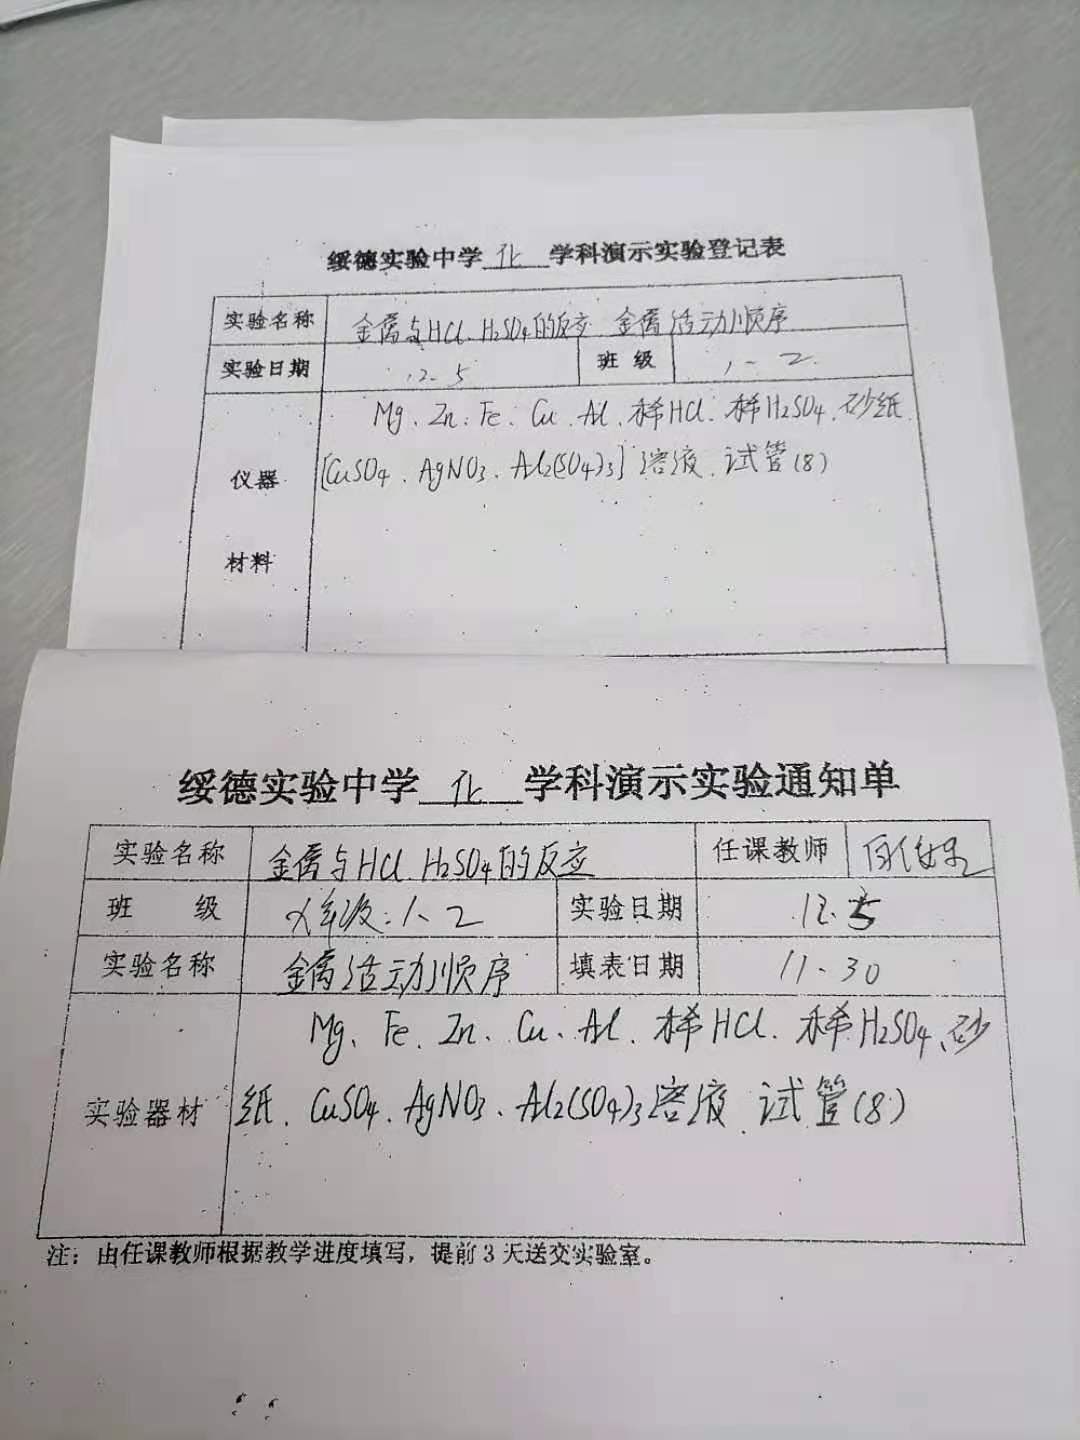 绥德实验中学 化 学科演示实验登记表
实验名称 金属与HCl、H₂SO₄的反应 金属活动顺序
实验日期 12.5 班 级 1、2
仪器 Mg、Zn、Fe、Cu、Al、稀HCl、稀H₂SO₄、砂纸
[CuSO₄、AgNO₃、Al₂(SO₄)₃]溶液、试管(8)
材料
绥德实验中学 化 学科演示实验通知单
实验名称 金属与HCl、H₂SO₄的反应 任课教师
班 级 年级:1、2 实验日期 12.5
实验名称 金属活动顺序 填表日期 11.30
Mg、Fe、Zn、Cu、Al、稀HCl、稀H₂SO₄、砂
实验器材 纸、CuSO₄、AgNO₃、Al₂(SO₄)₃溶液、试管(8)
注：由任课教师根据教学进度填写，提前3天送交实验室。